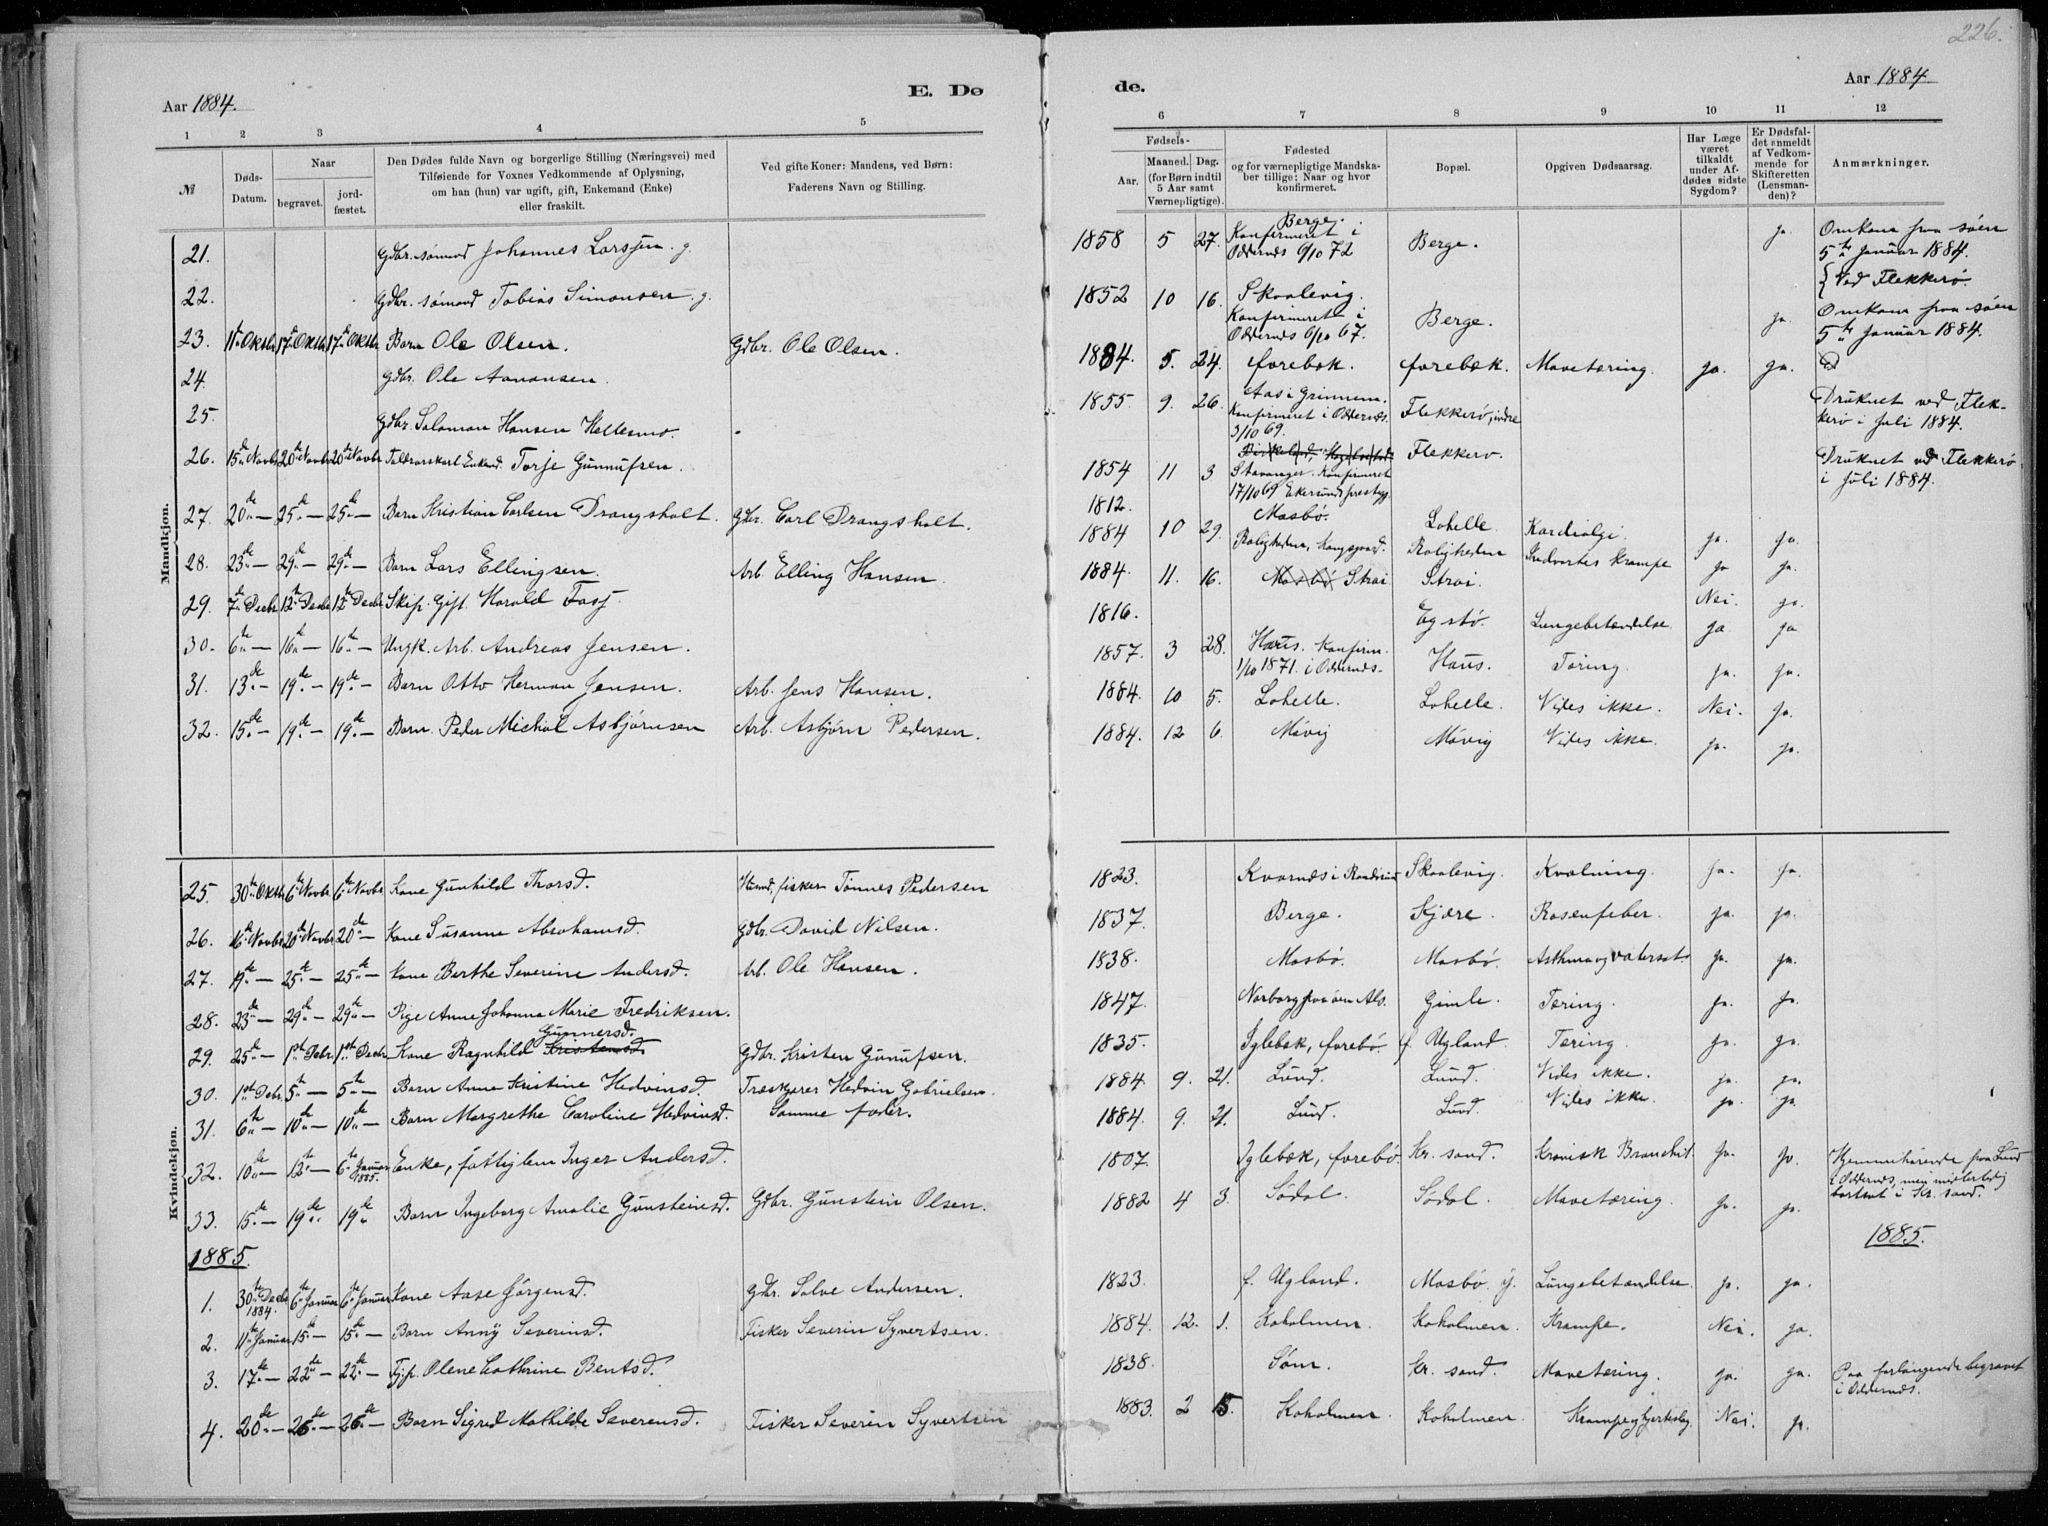 226.
Aar 1884.
E. Dø
de.
Aar 1884.
1 2 3 4 5
6 7 8 9 10 11 12
№
Døds-
Datum.
Naar
begravet.
jord-
fæstet.
Den Dødes fulde Navn og borgerlige Stilling (Næringsvei) med
Tilføiende for Voxnes Vedkommende af Oplysning,
om han (hun) var ugift, gift, Enkemand (Enke)
eller fraskilt.
Ved gifte Koner: Mandens, ved Børn:
Faderens Navn og Stilling.
Fødsels-
Aar.
Maaned. Dag.
(for Børn indtil
5 Aar samt
Værnepligtige).
Fødested
og for værnepligtige Mandska-
ber tillige: Naar og hvor
konfirmeret.
Bopæl.
Opgiven Dødsaarsag.
Har Læge
været
tilkaldt
under Af-
dødes sidste
Sygdom?
Er Dødsfal-
det anmeldt
af Vedkom-
mende for
Skifteretten
(Lensman-
den)?
Anmærkninger.
Mandkjøn.
21. Gdbr. sømand Johannes Larssen. g.
22. Gdbr. sømand Tobias Simonsen. g.
23. 11te Oktbr 17de Oktbr 17de Oktbr Barn Ole Olsen. Gdbr. Ole Olsen.
24. Gdbr. Ole Aanonsen.
25. Gdbr. Salomon Hansen Hellesmo.
26. 15de Novbr 20de Novbr 20de Novbr Enkemd. Torje Gunnufsen.
27. 20de — 25de — 25de — Barn Kristian Carlsen Drangsholt. Gdbr. Carl Drangsholt.
28. 23de — 29de — 29de — Barn Lars Ellingsen. Arb. Elling Hansen.
29. 7de Decbr 12te Decbr 12te Decbr Skip. Gift Harald
30. 6te — 16de — 16te — Ungk. Arb. Andreas Jensen.
31. 13de — 19de — 19de — Barn Otto Herman Jensen. Arb. Jens Hansen.
32. 15de — 19de — 19de — Barn Peder Michal Asbjørnsen Arb. Asbjørn Pedersen.
1858 5 27. Berge.
Konfirmeret i
Oddernes 6/10 72 Berge. ja. Omkom fra søen
5te Januar 1884.
{Ved Flekkerø.
1852 10 16. Skaalevig.
Konfirmeret i
Oddernes 6/10 67. Berge. ja. Omkom fra søen
5te Januar 1884.
1884 5. 24. forebæk. forebæk. Mavetæring. ja. ja.
1855 9. 26. Aas i Grimnem.
Konfirmeret i Oddernes
3/10 69. Flekkerø, indre Druknet ved Flek-
kerø i Juli 1884.
1854 11 3 Stavanger. Konfirmeret
17/10 69 Flekkerø. Druknet ved Flekkerø
i Juli 1884.
1812. Mosbø. Lohelle. Kardialgi. ja. ja.
1884 10 29. Roligheden, Kongsgaard. Roligheden Indvortes Krampe ja ja.
1884. 11. 16. Mosbø Strai Strai. Nei. ja.
1816. Egstø. Lungebetændelse. ja ja
1857. 3 28. Haus. Konfirm.
1/10 1871. i Oddernes. Haus. Tæring. ja. ja.
1884. 10 5. Lohelle. Lohelle. Vides ikke. Nei. ja.
1884. 12 6. Møvig Møvig Vides ikke. ja. ja.
Kvindekjøn.
25. 30te Oktbr 6te Novbr 6te Novbr Kone Gunhild Thorsd. Husmd, fisker Tønnes Pedersen
26. 16de Novbr 20de Novbr 20de — Kone Susanne Abrahamsd. Gdbr. David Nilsen.
27. 19de — 25de — 25de — Kone Berthe Severine Andersd. Arb. Ole Hansen.
28. 23de — 29de — 29de — Pige Anne Johanna Marie Fredriksen.
29. 25de — 1ste Decbr. 1ste Decbr Kone Ragnhild Kristensd. Gunnersd. Gdbr. Kristen Gunufsen.
30. 1ste Decbr. 5te — 5te — Barn Anne Kristine Hedvinsd. Træskjærer Hedvin Gabrielsen.
31. 6te — 10de — 10de — Barn Margrethe Caroline Hedvinsd. Samme fader.
32. 10de — 12te — 6te Januar 1885. Enke, fattiglem Inger Andersd.
33. 15de — 19de — 19de Barn Ingeborg Amalie Gunsteinsd. Gdbr. Gunstein Olsen.
1885.
1. 30te Decbr 1884. 6te Januar 6te Januar Kone Aase Jørgensd. Gdbr. Salve Andersen.
2. 11te Januar 15de — 15de — Barn Anny Severinsd. Fisker Severin Syvertsen.
3. 17de — 22de — 22de — Fyp. Olene Cathrine Bentsd.
4. 20de — 26de — 26de — Barn Sigrid Mathilde Severensd. Fisker Severin Syvertsen
1823. Kvarnes i Randesund Skaalevig. Kvælning. ja. ja.
1837. Berge. Kjære. Rosenfeber. ja. ja.
1838. Mosbø. Mosbø. Asthma og vatersot. ja. ja.
1847. Norborg paa øen Als. Gimle. Tæring. ja. ja.
1835. Iglebæk, forebø. f. Ugland. Tæring. ja. ja.
1884 9. 21. Lund. Lund. Vides ikke. ja. ja.
1884. 9. 21. Lund. Lund. Vides ikke. ja. ja.
1807. Iglebæk, forebø. Kr. sand. Kronisk Bronchit. ja. ja. Hjemmehørende fra Lund
i Oddernes, men midlertidig
bortsat i Kr. sand.
1882 4 3. Sødal. Sødal. Mavetæring. ja. ja.
1885.
1823. f. Ugland. Mosbø. y. Lungebetændelse. ja. ja.
1884. 12. 1. Koholmen. Koholmen. Krampe. Nei. ja.
1838. Søm. Kr. sand. Mavetæring. ja. ja. Paa forlangende begravet
i Oddernes.
1883. 2 15. Koholmen. Koholmen. Krampe og hjerteslag. Nei. ja.